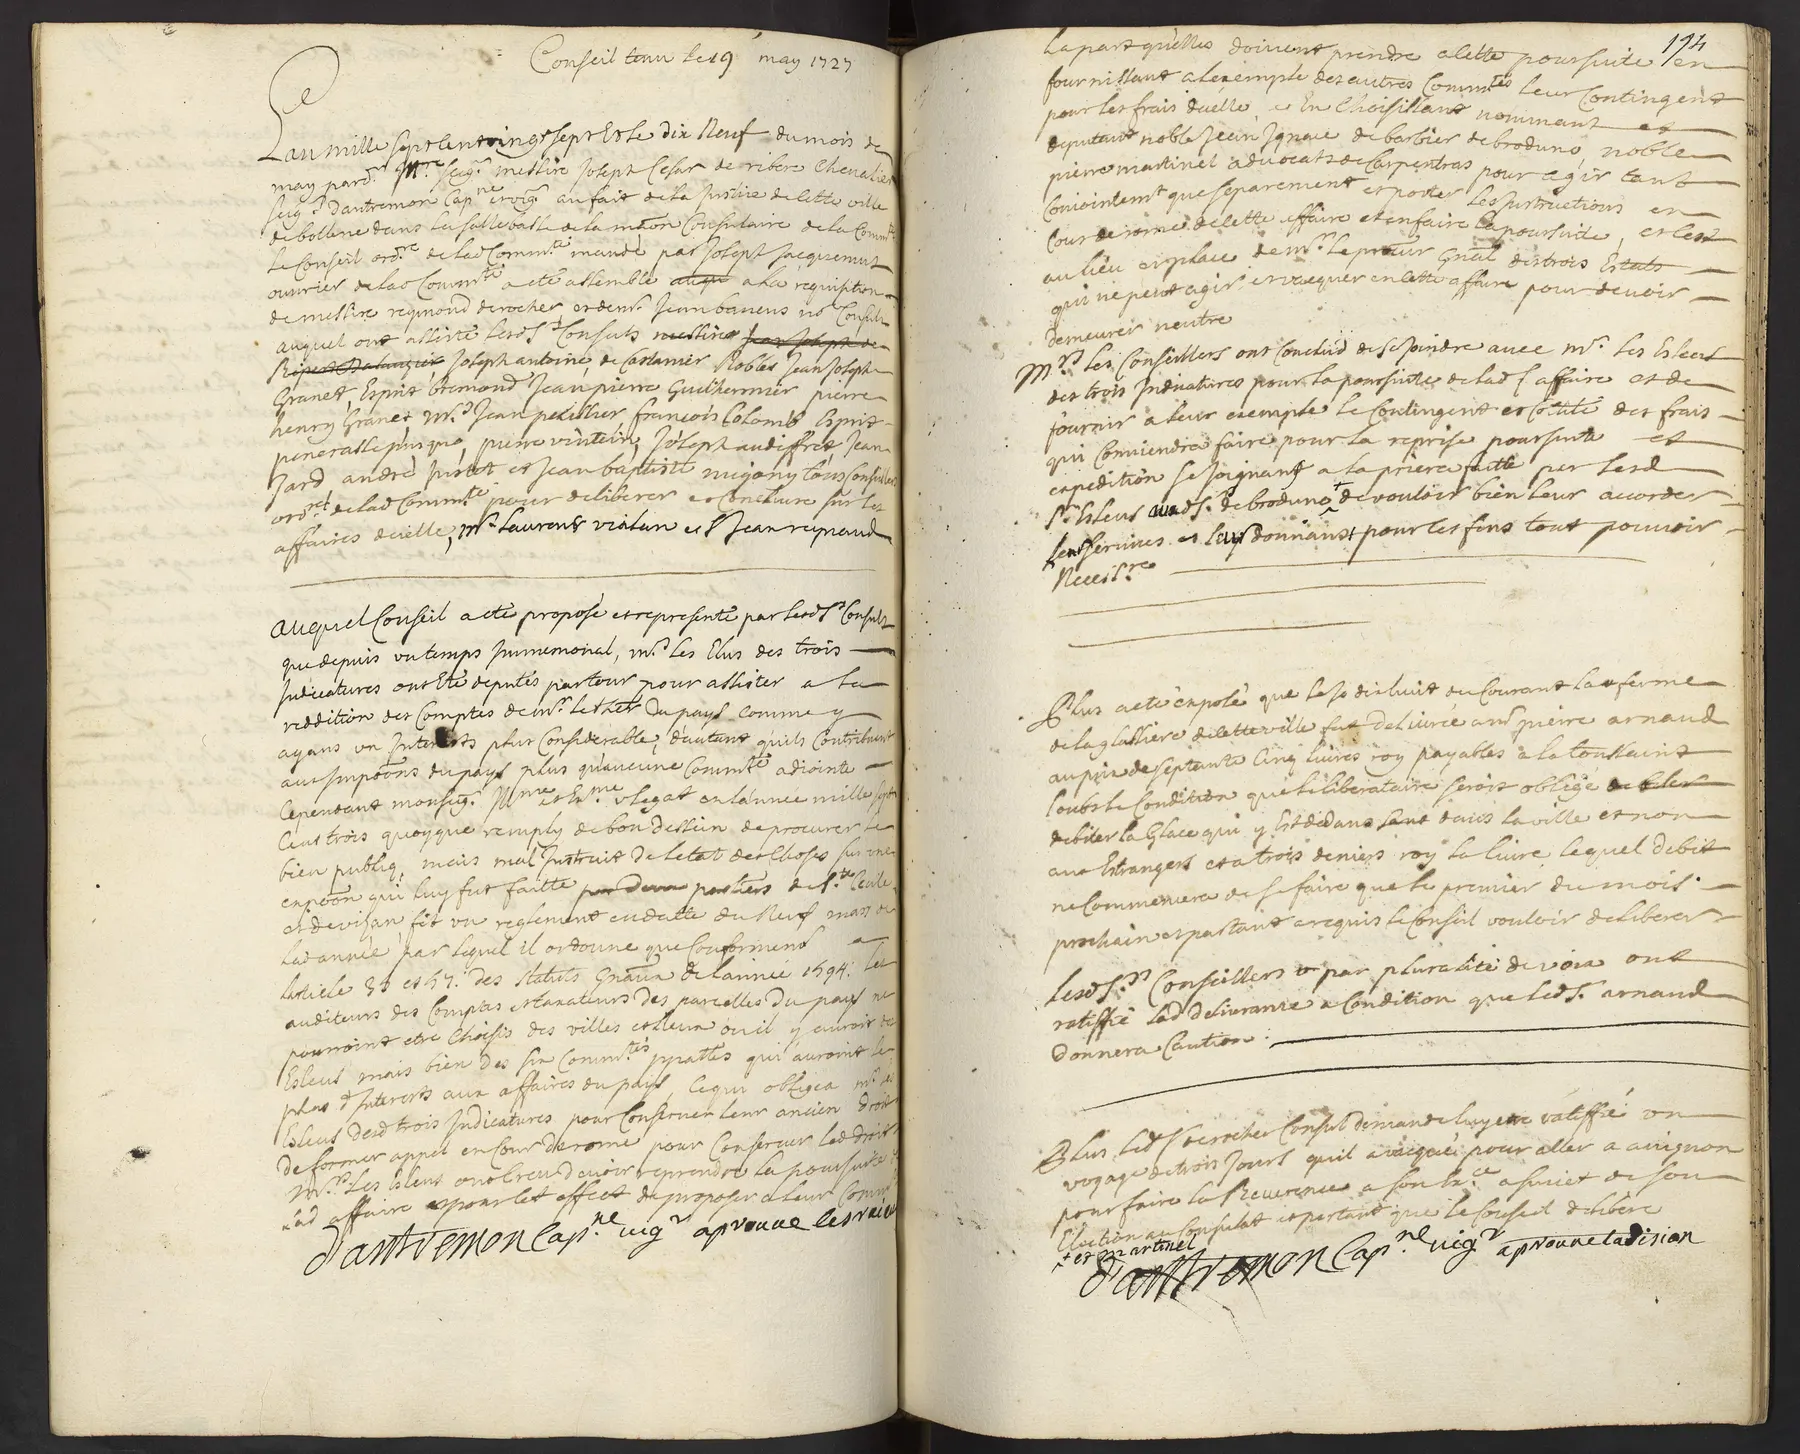 Conseil tenu le 19 may 1727
L'an mille sept cent vingt sept Et le dix Neuf du mois de
may pard.t seig.r messire Joseph Cesar de ribere Chevalier
seig.r d'autremon Cap.ne et vig.r au fait de la Justice de cette ville
de bollene dans la salle basse de la maon Consulaire de la Comm.té
le Conseil ord.re de lad Comm.té mandé par Joseph Jacquemut
ouvrier de lad Comm.té a eté assemblé a la requisition
de messire reymond de rocher, et de m.r Jean banens nos Consuls
auquel ont assisté lesd s.rs Consuls messire Jean Joseph de
Joseph antoine de Castanier Nobles Jean Joseph
Granet, Esprit bremond Jean pierre Guilhermier pierre
henry Granet, m.rs Jean pelissier, françois Colomb Esprit
pierre vintein, Joseph audiffret, Jean
Jard andré Justet et Jean baptiste migony tous conseillers
ord.res de lad Comm.té pour deliberer et Conclure sur les
affaires d'icelle, m.r Laurens vialan et s.r Jean reynaud
auquel Conseil a eté proposé et representé par lesd s.rs Consuls
que depuis un temps Jmmemorial, m.rs les Elus des trois
Judicatures ont Eté deputés par tour pour assister a la
reddition des Comptes de m.r le thés.r du pays comme y
ayans un Jnterets plus Considerable, d'autant qu'ils Contribuent
aux Jmpõons du pays plus qu'aucune Comm.té adjointe
Cependant monseig.r Jll.me et Ex.me vlegat en l'année mille sept
Cens trois quoyque remply de bon dessein de procurer le
bien publiq, mais mal Jnstruit de l'etat des choses sur une
expõon qui luy fut faitte par deux particers de s.te Cecile
et de vizan, fit un reglement en datte du Neuf mars de
lad année par lequel il ordonne que Conformem.t a
l'article 33 et 57. des statuts Gnaux de l'année 1594. les
auditeurs des Comptes et tanateurs des parcelles du pays ne
pourroint etre Choisis des villes et lieux ou il y auroit des
Esleus mais bien des six Comm.tés ppalles qui auroint le
plus d'Jnterets aux affaires du pays, Ce qui obligea m.rs les
Esleus desd trois Judicatures pour Conserver leur ancien droit
de former appel en Cour de rome pour Conserver led droit
M.rs Les Esleus ont creu devoir reprendre la poursuite de
lad affaire et pour cet effect de proposer a leur Comm.tés
d'autremon Cap.ne vig.r aprouve les raies
194
la part qu'elles doivent prendre a cette poursuite en
fournissant a l'exemple des autres Comm.tés leur Contingent
pour les frais d'icelle et En Choisissant nommant et
deputant noble Jean Jgnace de barbier de broduno, noble
pierre martinel advocats de Carpentras pour agir tant
Conjointem.t que separement et porter les Jnstructions en
Cour de rome de cette affaire et en faire la poursuite, et c'est
au lieu et place de m.r le procur Gnal des trois Estats
qui ne peut agir et vacquer en cette affaire pour devoir
demeurer neutre
M.rs les Conseillers ont Conclud de se Joindre avec m.rs les Esleus
des trois Judicatures pour la poursuite de lad affaire et de
fournir a leur exemple le Contingent et Cottité des frais
qui Conviendra faire pour la reprise poursuite et
expedition se Joignant a la priere faitte par lesd
s.rs Esleus aud s.r de broduno + de vouloir bien leur accorder
leurs services et leur donnans pour les fins tout pouvoir
Necess.re
Plus a eté exposé que le Jo dixhuit du Courant la ferme
de la glassiere de cette ville fut delivrée au s.r pierre arnaud
au prix de septante Cinq livres roy payables a la toussaint
soubs le Condition que le liberataire seroit obligé de
debiter la Glace qui y Est dedans dans la ville et non
aux Estrangers et a trois deniers roy la livre lequel debit
ne Commencera de se faire que le premier du mois
prochain et partant a requis le Conseil vouloir deliberer
Lesd s.rs Conseillers par pluralité de voix ont
ratiffié lad delivrance a Condition que led s.r arnaud
donnera Caution.
Plus led s.r de rocher Consul demande luy etre ratiffié un
voyage de trois Jours qu'il a vacqué pour aller a avignon
pour faire la Reverence a son Ex.ce a sujet de son
Election au Consulat et partant que le Conseil delibere
+ et martinel
d'autremon Cap.ne vig.r aprouve ladision